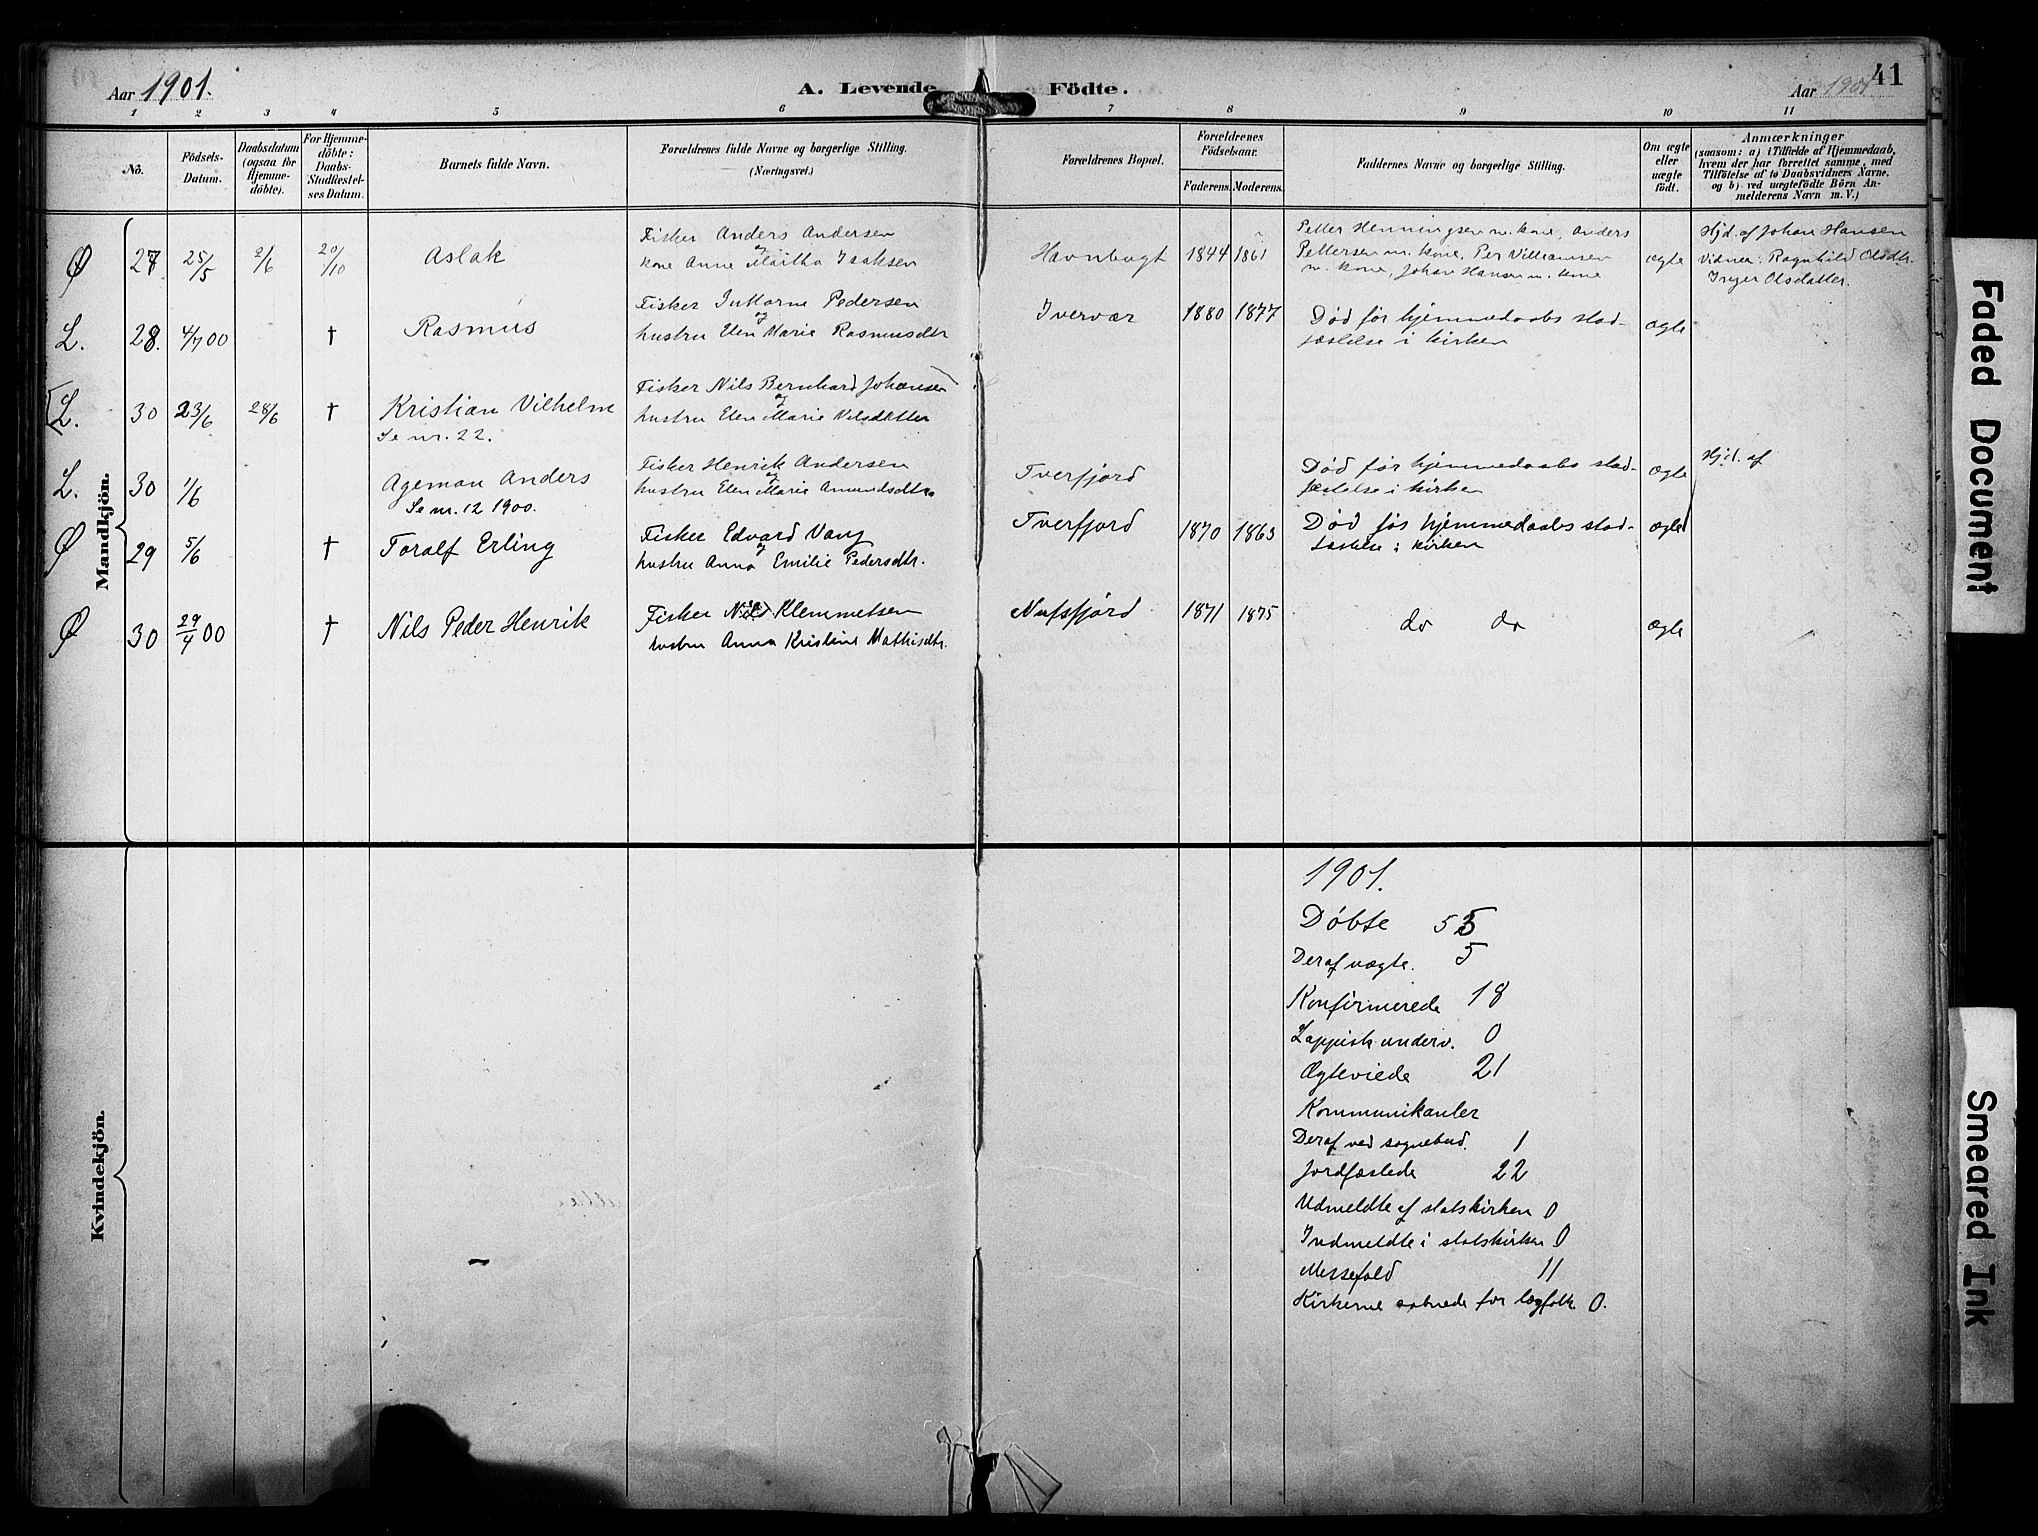 Aar 1901.
A. Levende Födte.
Aar 1901
41
1 2 3 4 5 6 7 8 9 10 11
No.
Födsels-
Datum.
Daabsdatum
(ogsaa for
Hjemme-
döbte).
For Hjemme-
döbte:
Daabs-
Stadfæstel-
ses Datum.
Barnets fulde Navn.
Forældrenes fulde Navne og borgerlige Stilling.
(Næringsvei.)
Forældrenes Bopæl.
Forældrenes
Födselsaar.
Faderens. Moderens.
Faddernes Navne og borgerlige Stilling.
Om ægte
eller
uægte
födt.
Anmærkninger
(saasom: a) i Tilfælde af Hjemmedaab,
hvem der har forrettet samme, med
Tilföielse af to Daabsvidners Navne,
og b) ved uægtefödte Börn An-
melderens Navn m. V.)
Mandkjön.
Ø 27 25/5 2/6 20/10 Aslak
Fisker Anders Andersen
og
kone Anne Maritha Isaksen
Havnbugt 1844 1861
Petter Henningsen m. kone, Anders
Pettersen m. kone, Per Villiamsen
m. kone, Johan Hansen m. kone
ægte
Hjd. af Johan Hansen
Vidner: Ragnhild Olsdtr.
Inger Olsdatter.
L. 28. 4/7 00 † Rasmus
Fisker Pedersen
og
hustru Elen Marie Rasmusdtr
Ivervær 1880 1877
Død før hjemmedaabs stad-
fæstelse i kirken
ægte
L. 30 23/6 28/6 † Kristian Vilhelm
Se nr. 22.
Fisker Nils Bernhard Johansen
og
hustru Elen Marie Nilsdatter
L. 30 1/6 Ageman Anders
Se nr. 12 1900.
Fisker Henrik Andersen
og
hustru Elen Marie Amundsdtr
Tverfjord
Død før hjemmedaabs stad-
fæstelse i kirken
ægte
Hjd. af
Ø 29 5/6 † Toralf Erling
Fisker Edvard Vang
og
hustru Anna Emilie Pedersdtr.
Tverfjord 1870 1863
Død før hjemmedaabs stad-
fæstelse i kirken
ægte
Ø 30 29/4 00 † Nils Peder Henrik
Fisker Nils Klemmetsen
hustru Anna Kristine Mathisdtr.
Nufsfjord 1871 1875
do do
ægte
Kvindekjön.
1901.
Døbte 55
Deraf uægte. 5
Konfirmerede 18
Lappisk underv. 0
Ægteviede 21
Kommunikanter
Deraf ved sognebud. 1
Jordfæstede 22
Udmeldte af statskirken 0
Indmeldte i statskirken 0
Messefald 11
Kirkerne aabnede for lægfolk 0.
Faded Document
Smeared Ink